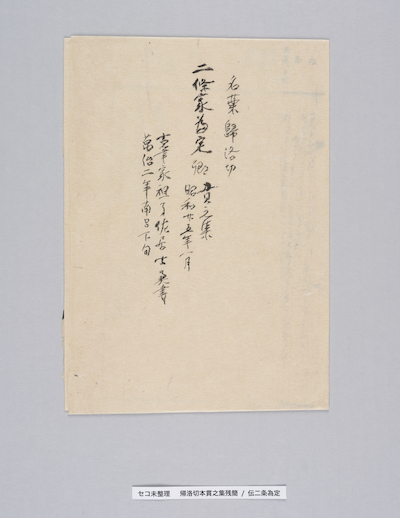 名葉歸洛切
二條家為定卿 貫之集
昭和廿五年一月
古筆家祖了佐居士 書
萬治二年南呂下旬
セコ未整理　帰洛切本貫之集残簡 / 伝二条為定